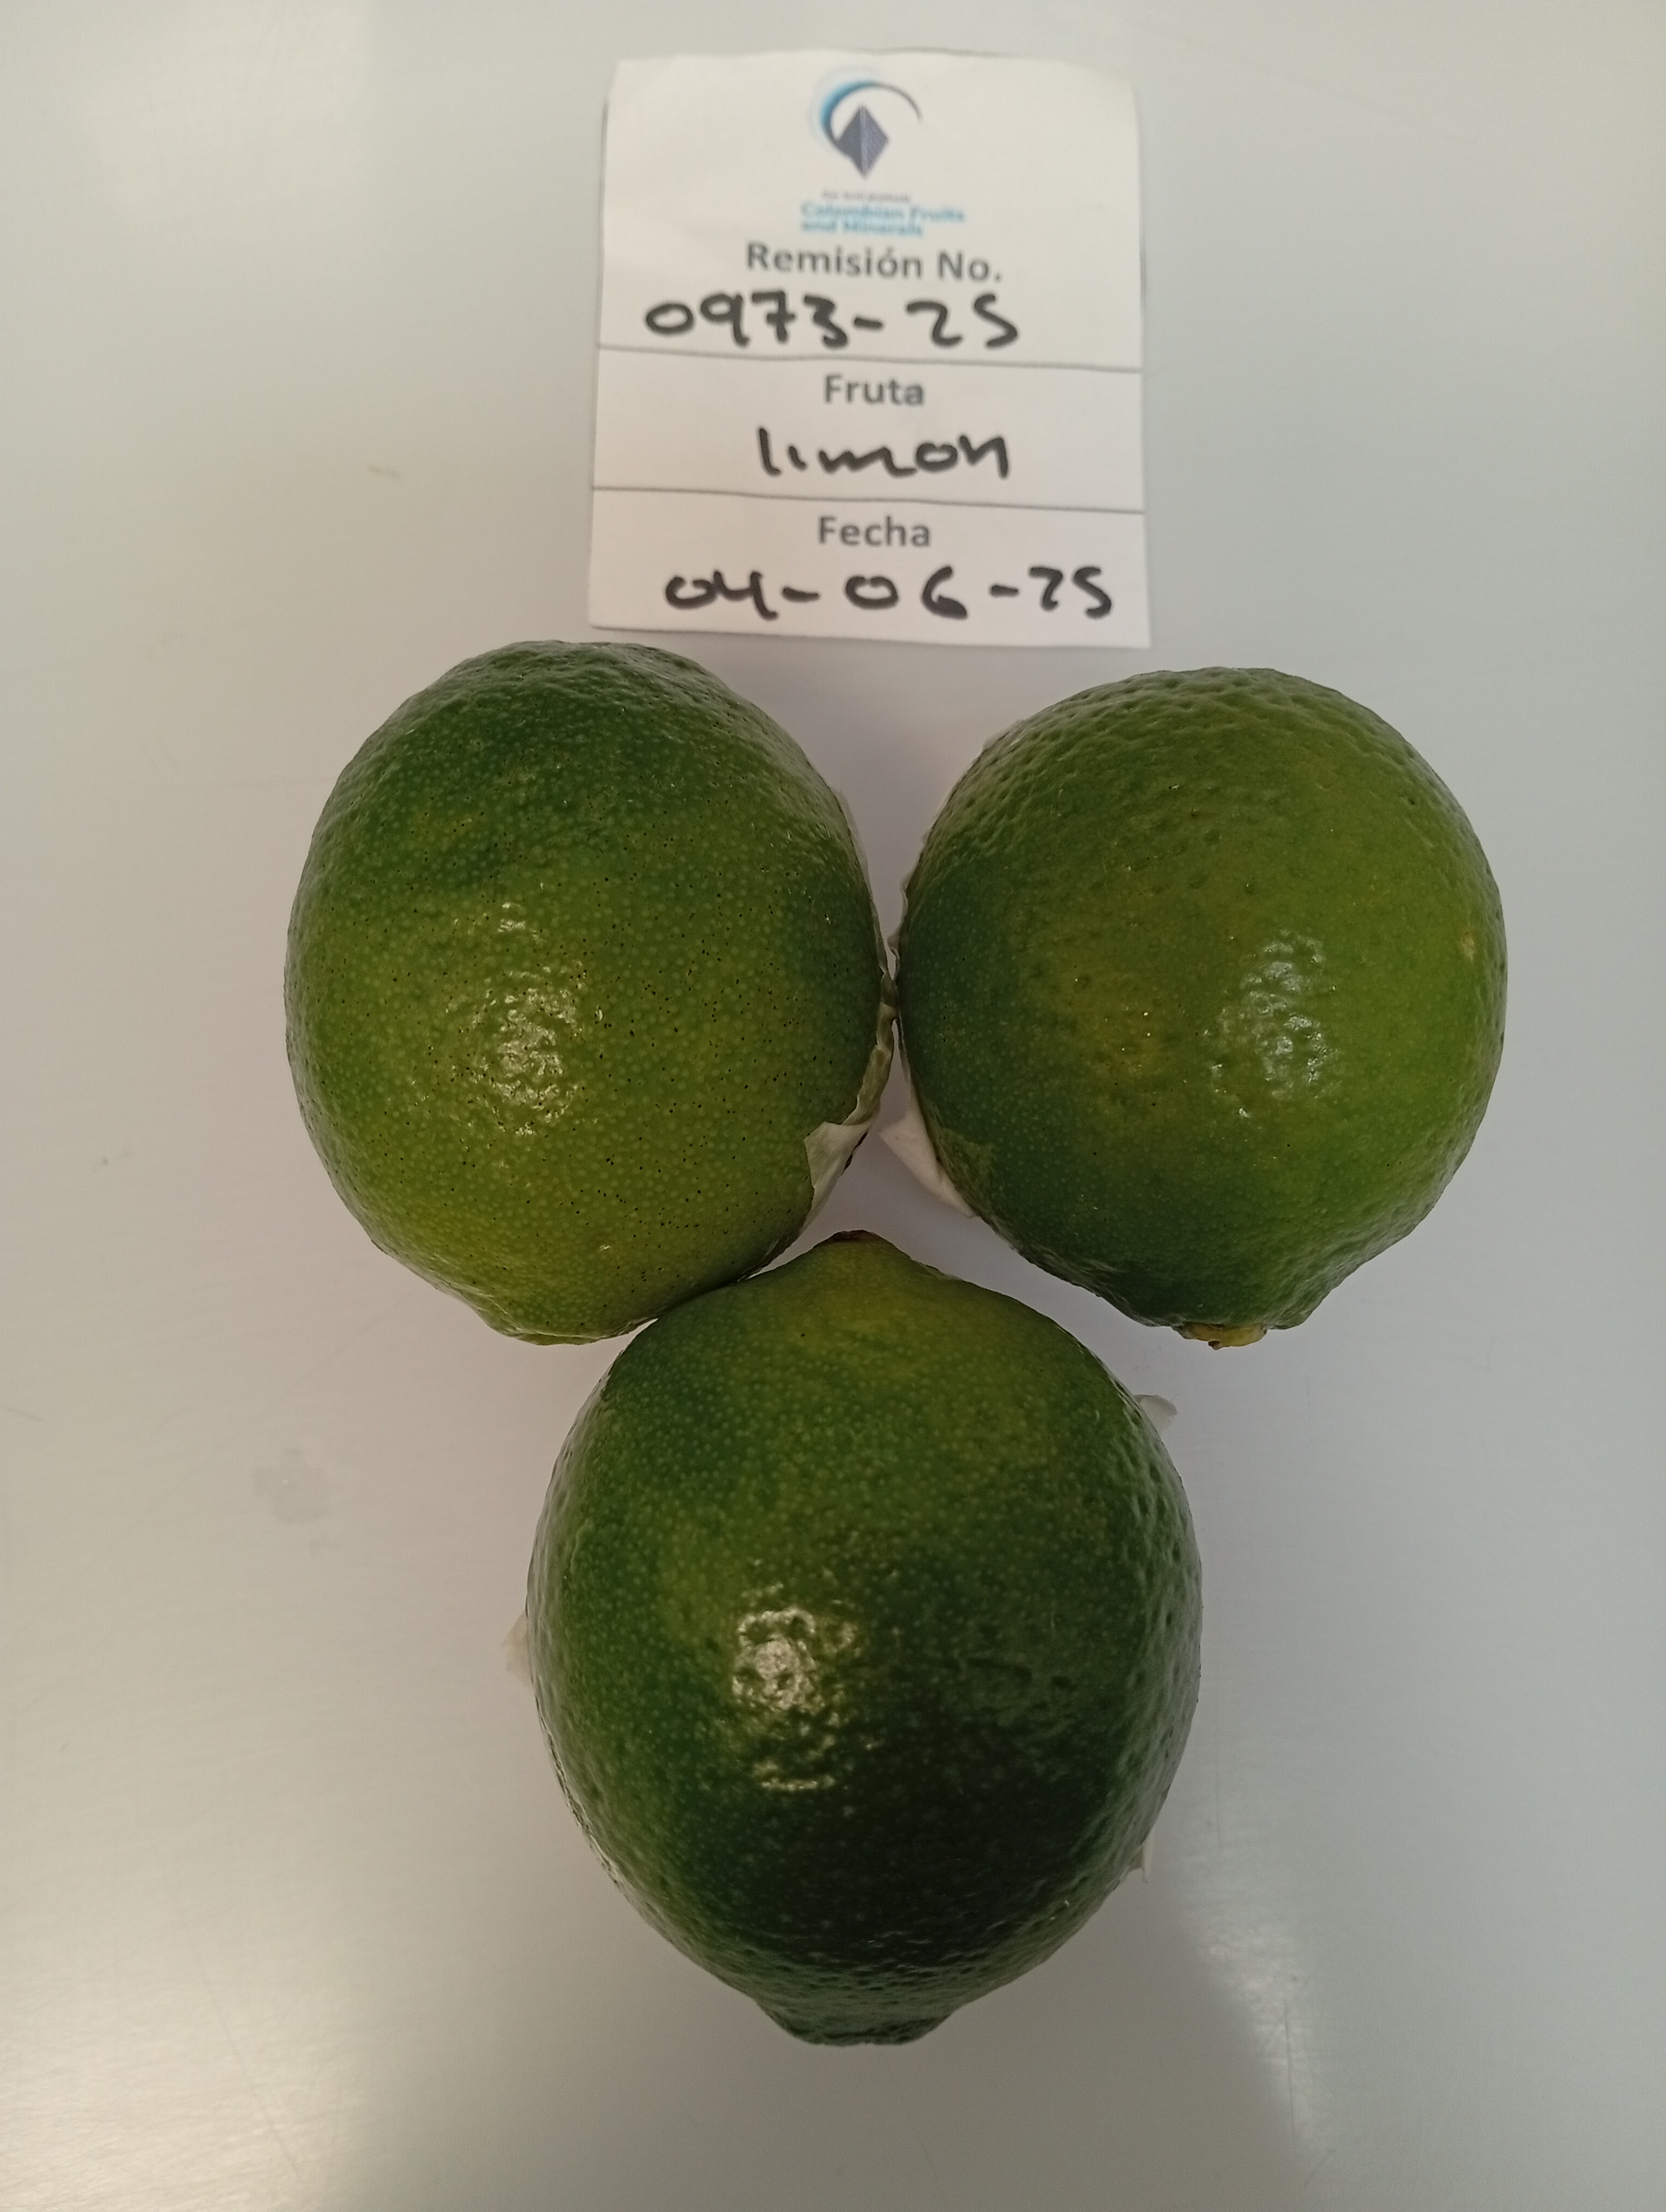 Colombian Fruits
and Minerals
Remisión No.
0973-25
Fruta
limon
Fecha
04-06-25